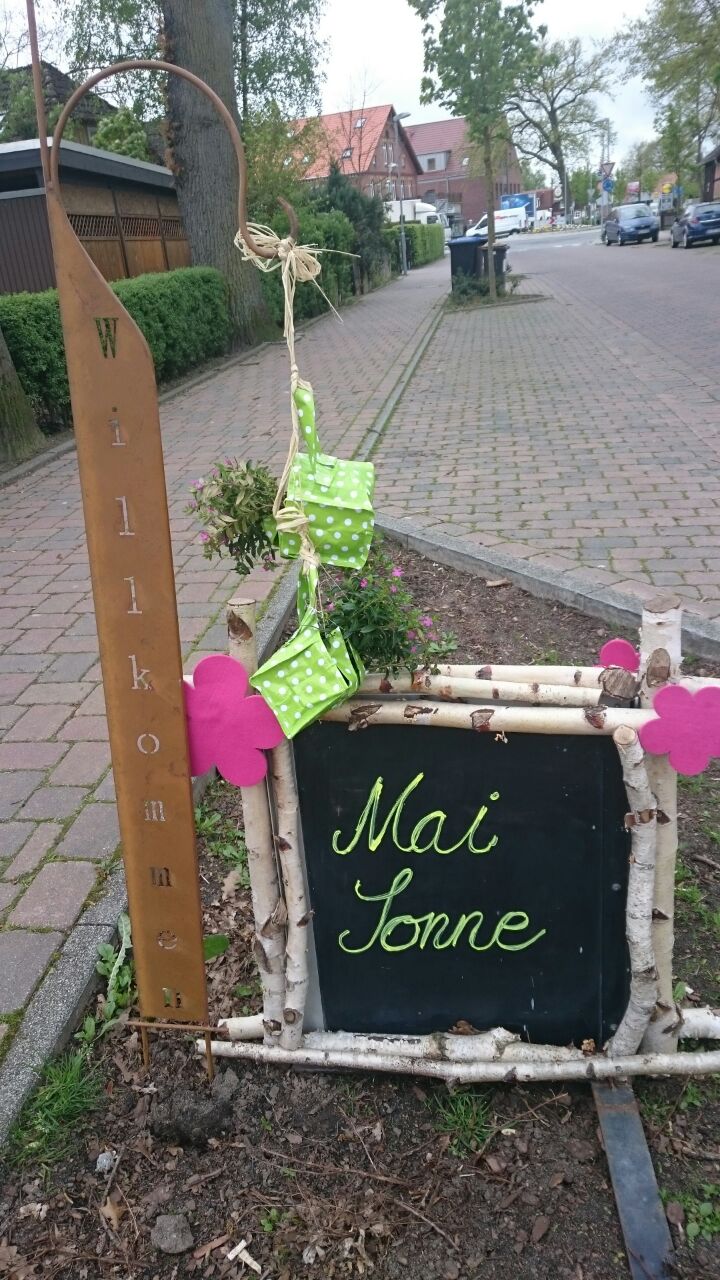 Willkommen
Mai
Sonne